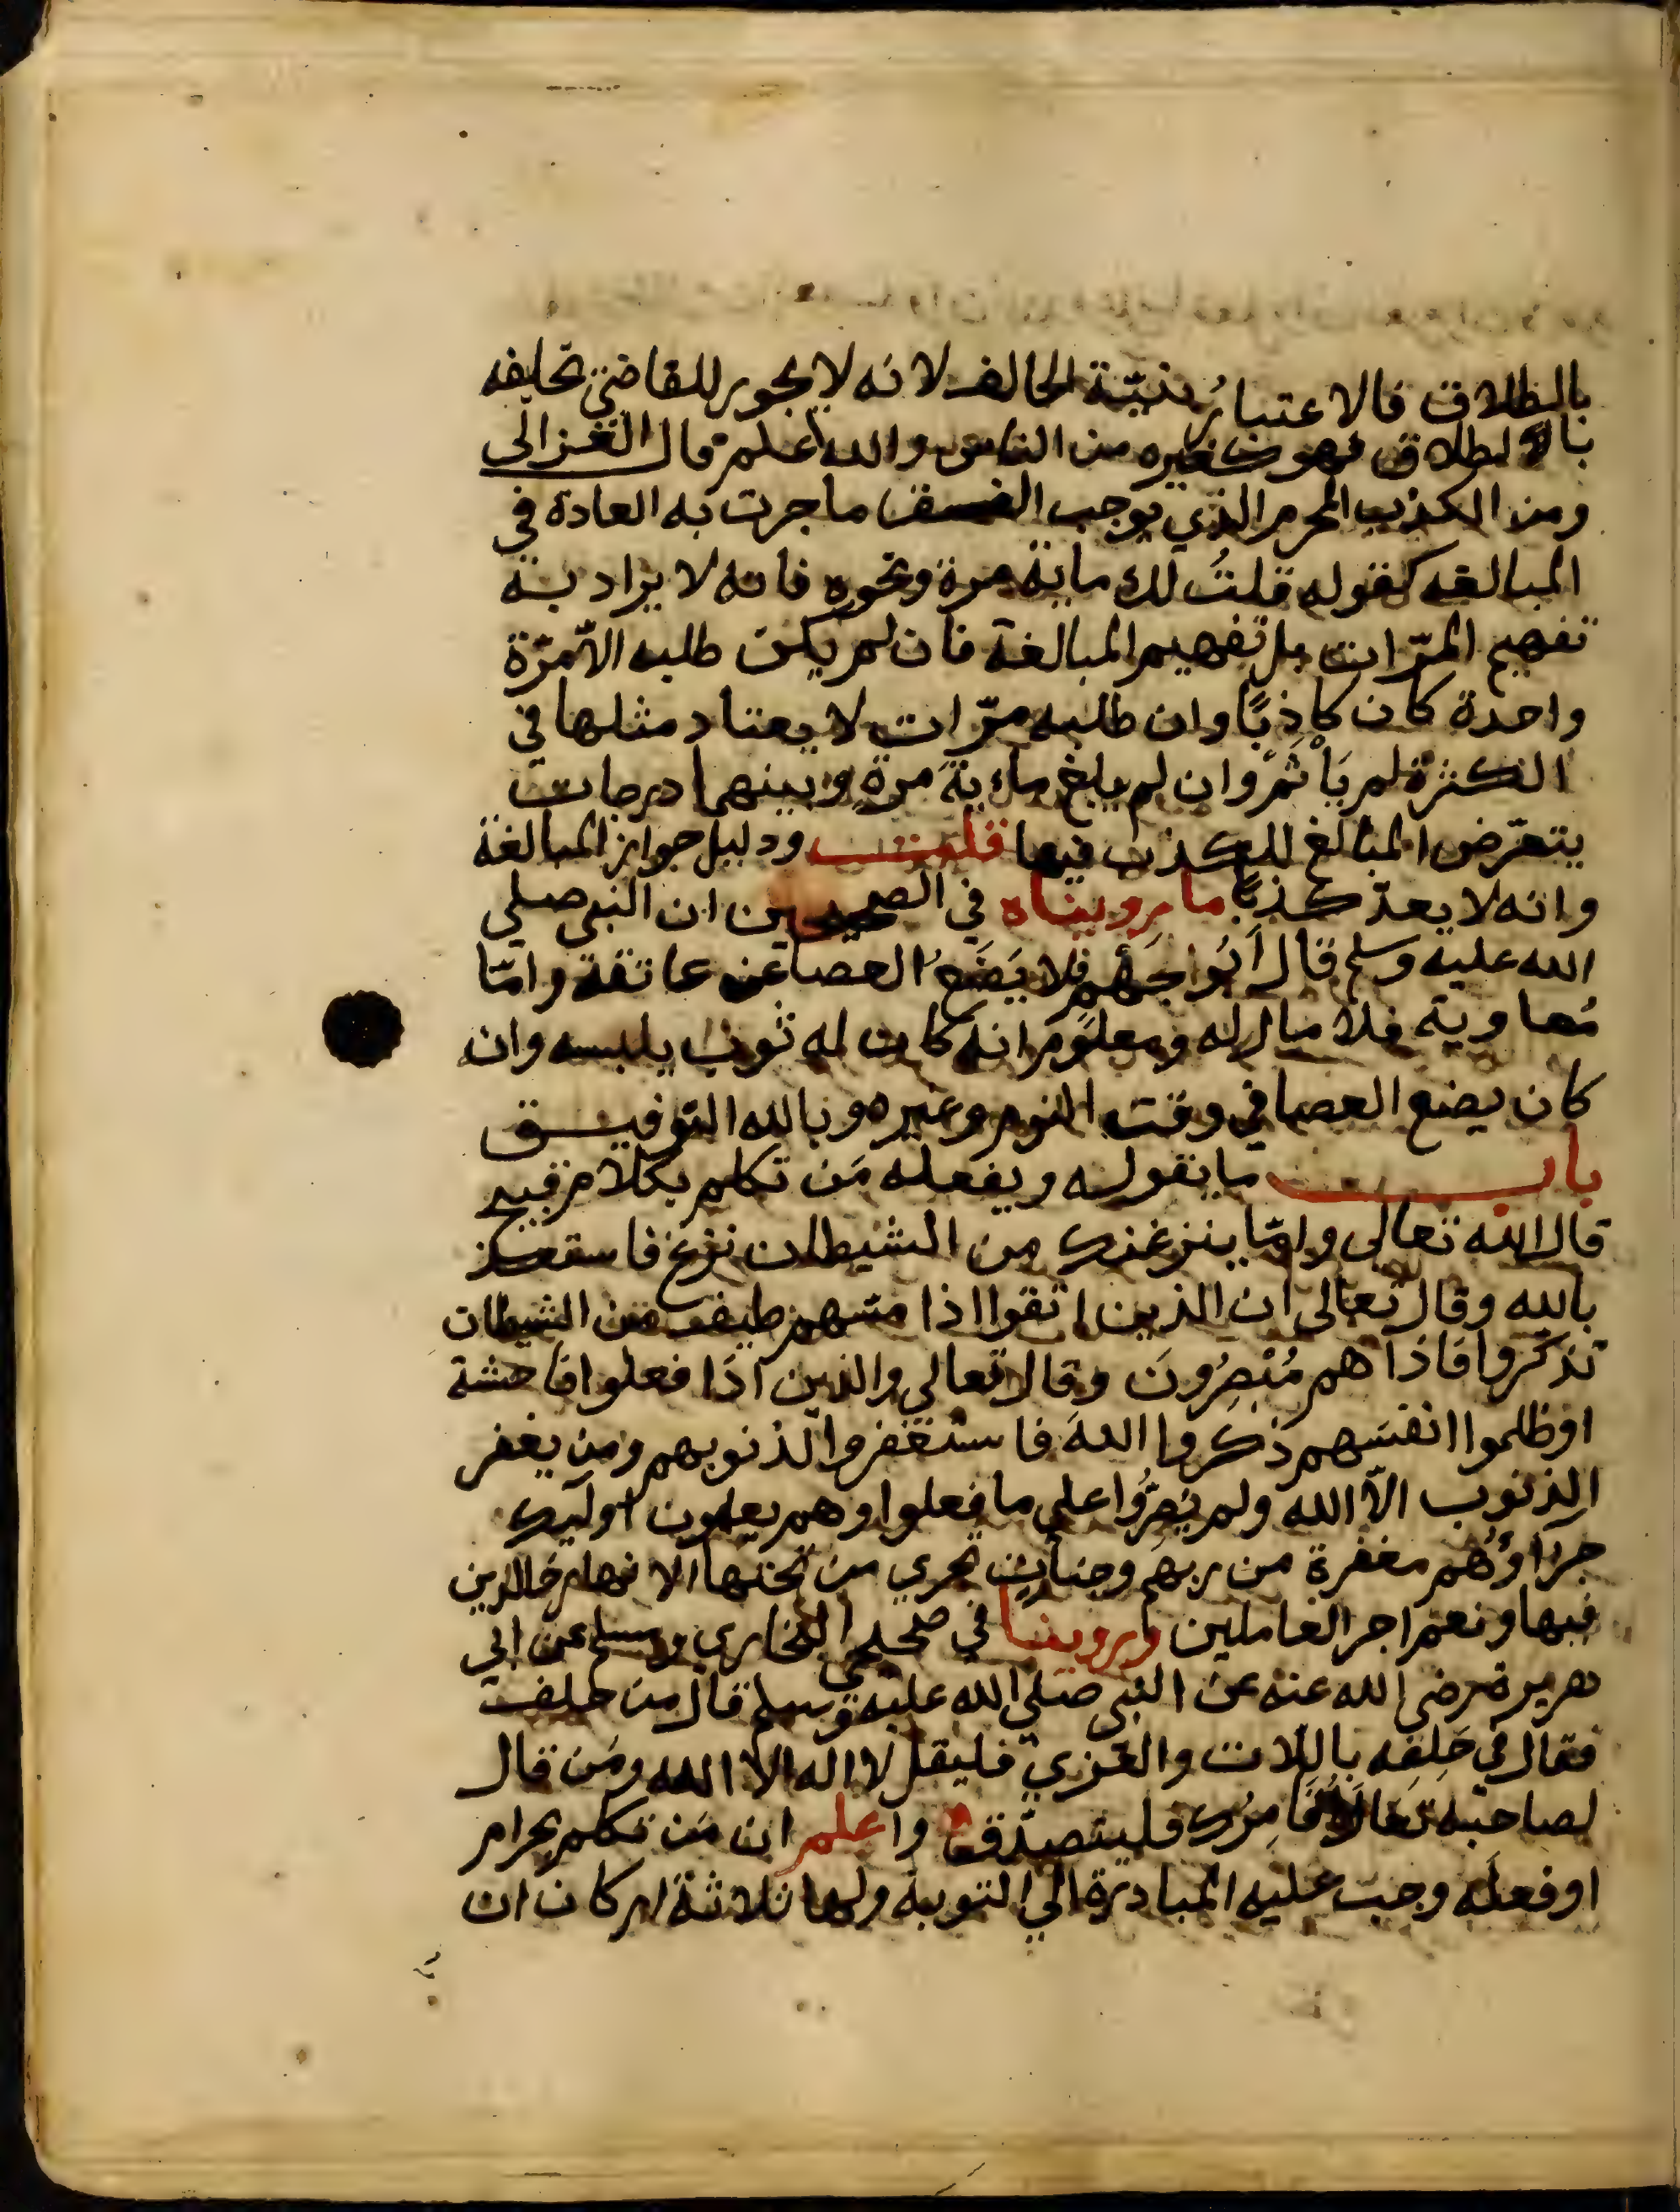 بالطلاق فالاعتبارُ بنيّة الحالف لانه لا يجوز للقاضي تحليفه
بالطلاق فهو كغيره من الناس والله اعلم قال الغزالى
ومن الكذب المحرم الذي يوجب الفسق ما جرت به العادة في
المبالغه كقوله قلتُ لك ماية مرة ونحوه فانه لا يراد به
تفهيم المرّات بل تفهيم المبالغة فان لم يكن طلبه الاّ مرّة
واحدة كان كاذِبًا وان طلبه مرّات لا يعتاد مثلها في
الكثرة لم يَأْثَمْ وان لم يبلغ ماءيةَ مرةٍ وبينهما درجات
يتعرّض المبالغ للكذب فيها قلت ودليل جواز المبالغة
وانه لا يعدّ كذبًا ما رويناه في الصحيحين ان النبي صلى
الله عليه وسلم قال اَبُو اجَهْمٍ فلا يَضَعُ العصا عن عاتقة وامّا
مُعاوية فلا مال له ومعلومٌ انه كان له ثوب يلبسه وان
كان يضع العصا في وقت النوم وغيره وبالله التوفيق
باب ما يقوله ويفعله مَن تكلم بكلام قبيح
قال الله تعالى وامّا ينزغنك من الشيطان نزغ فاستعذ
بالله وقال تعالى ان الذين اتقوا اذا مسّهم طيف من الشيطان
تذكروا فاذا هم مُبْصِرُونَ وقال تعالى والذين اذَا فعلوا فاحشة
او ظلموا انفسَهم ذكروا اللهَ فاستغفروا لذنوبهم ومن يغفر
الذنوب الاّ الله ولم يُصِرُّوا على ما فعلوا وهم يعلمون اولَيك
جزآوُهُم مغفرة من ربهم وجناتٍ تجري من تحتها الانهار خالدين
فيها ونعم اجر العاملين وروينا في صحيحي البخاري ومسلم عن ابي
هريرة رضي الله عنه عن النبى صلى الله عليه وسلم قال من حلف
فقال في حَلِفِه باللات والعُزي فليقل لا اله الا الله ومَن قال
لصاحبه تعالَ اُقامِرْك فليتصدّق واعلم ان مَن تكلم بحرام
او فعلَه وجبَ عليه المبادرة الي التوبة ولها ثلاثة اركان ان